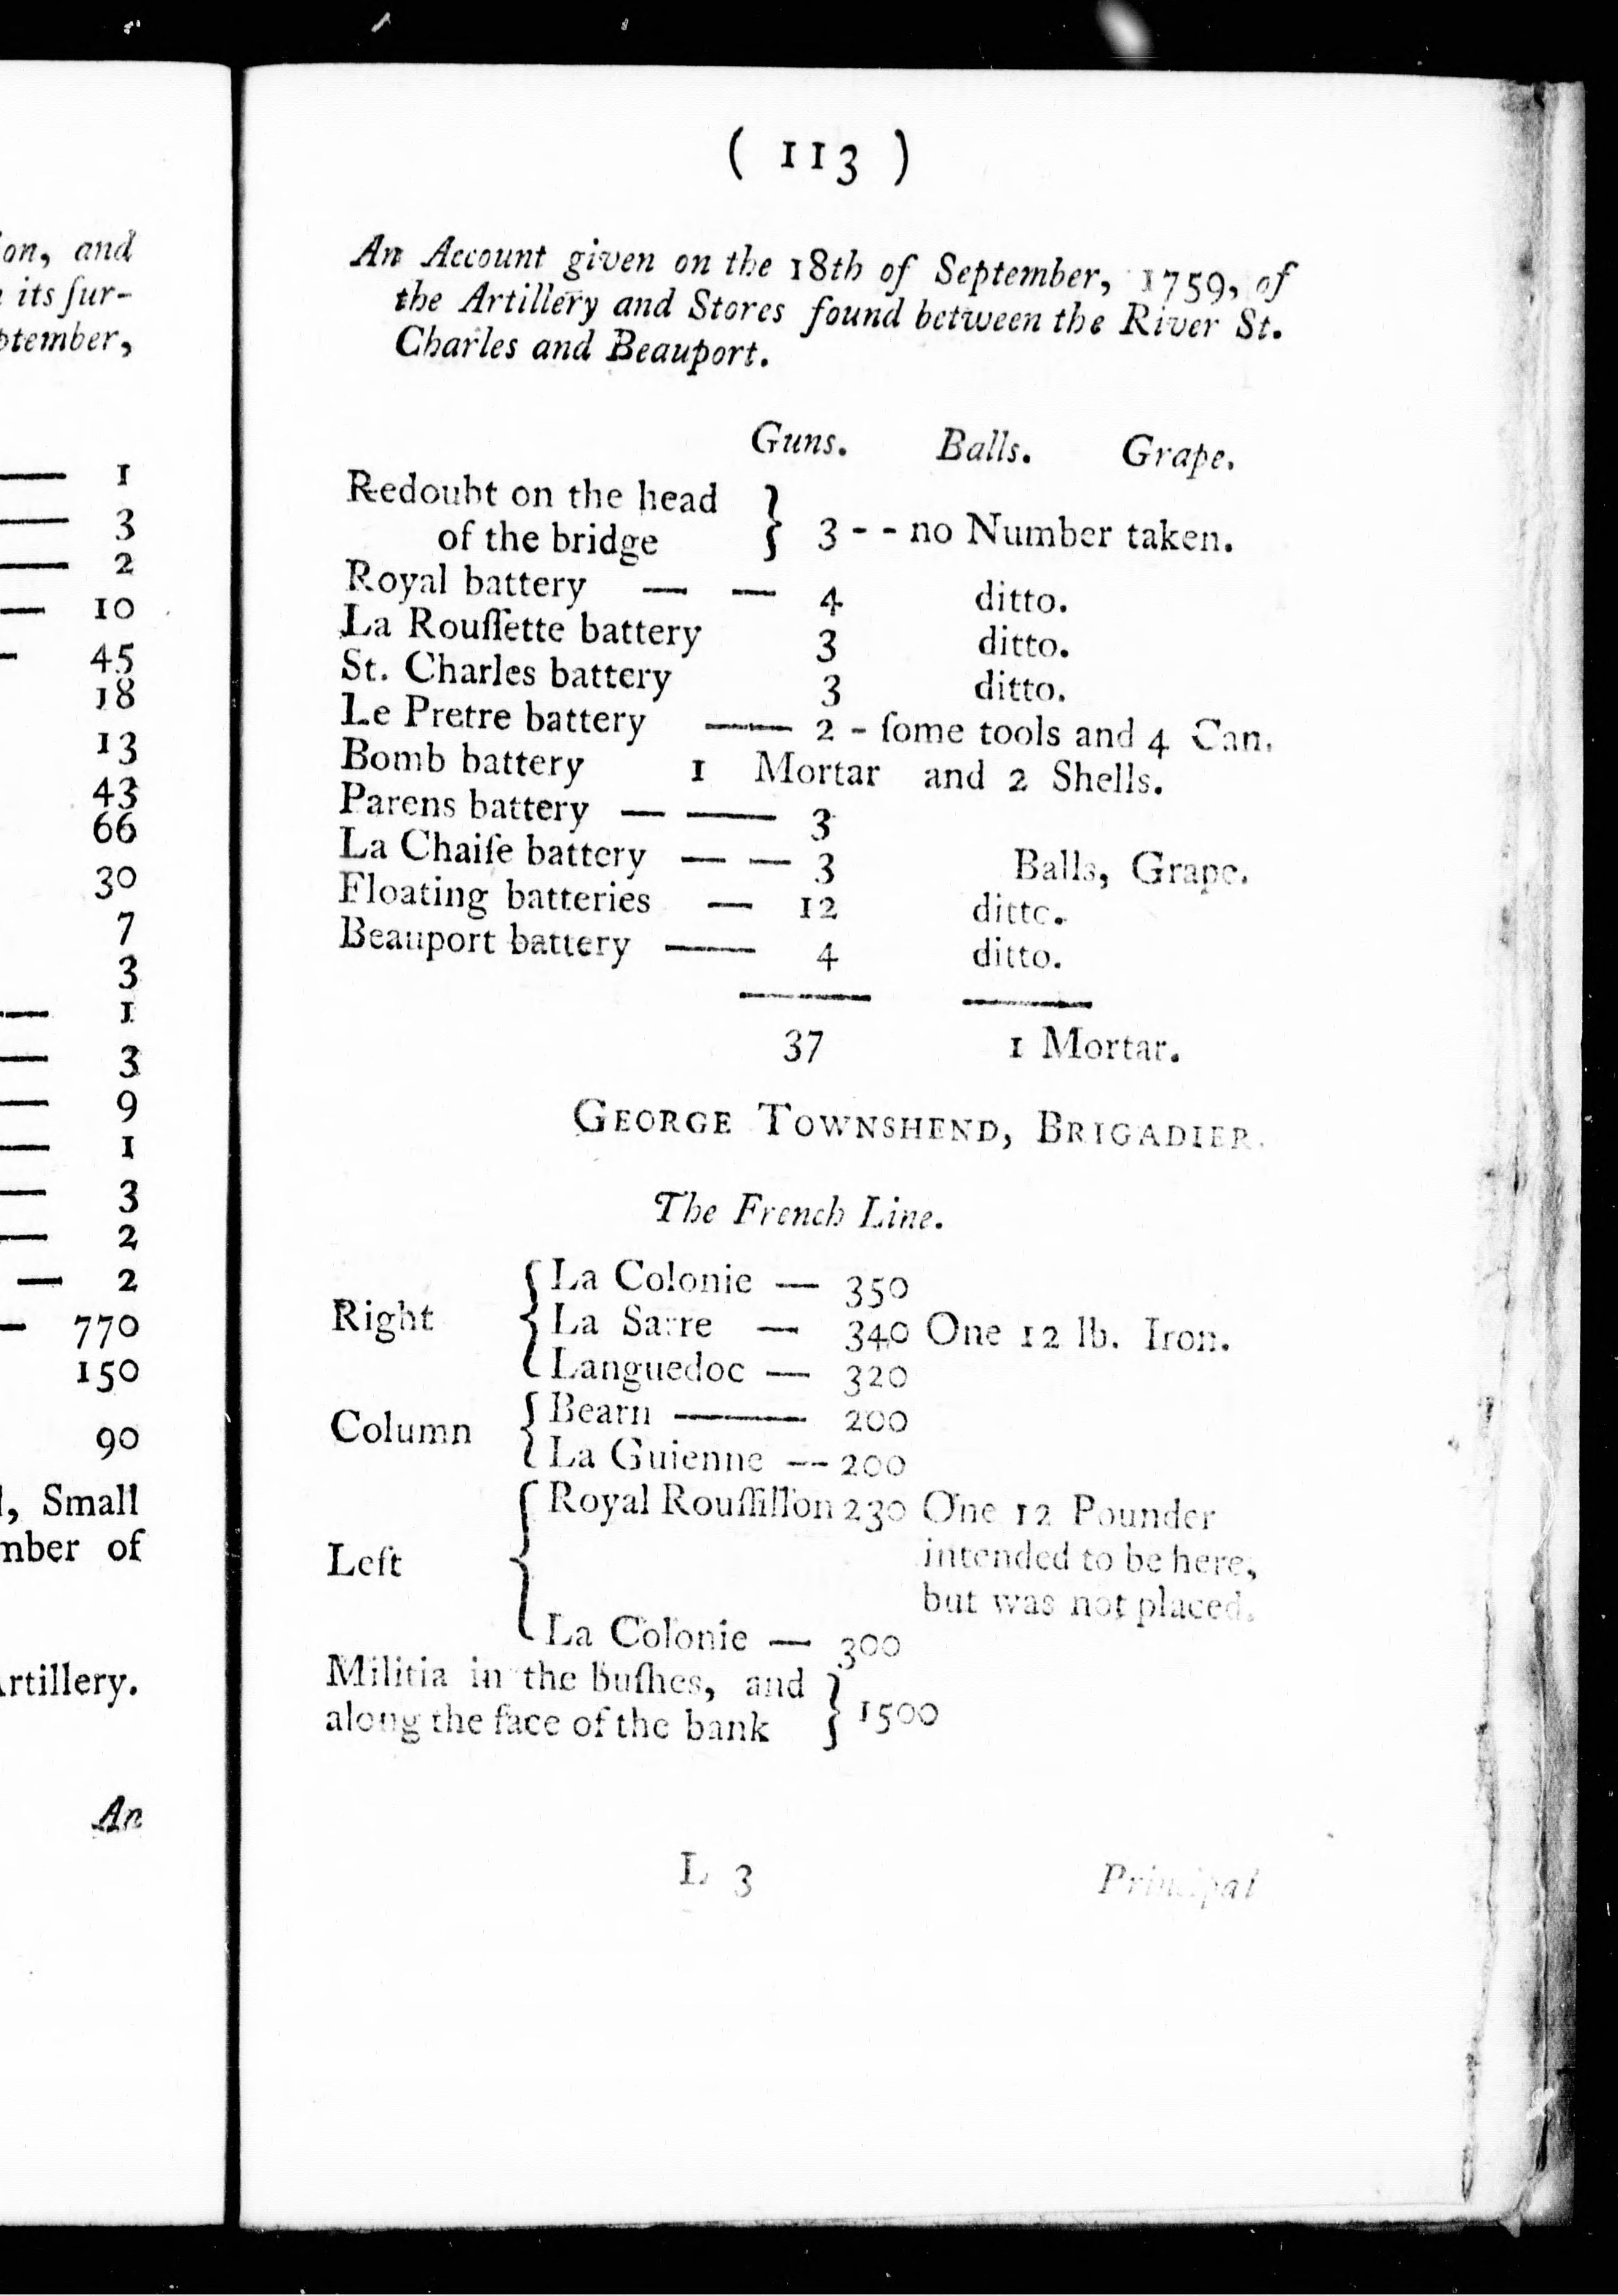 on, and
its ſur-
ptember,
— 1
— 3
— 2
— 10
- 45
18
13
43
66
30
7
3
— 1
— 3
— 9
— 1
— 3
— 2
— 2
— 770
150
90
, Small
mber of
Artillery.
An
( 113 )
An Account given on the 18th of September, 1759, of
the Artillery and Stores found between the River St.
Charles and Beauport.
Guns. Balls. Grape.
Redoubt on the head
of the bridge } 3 - - no Number taken.
Royal battery — — 4 ditto.
La Rouſſette battery 3 ditto.
St. Charles battery 3 ditto.
Le Pretre battery —— 2 - ſome tools and 4 Can.
Bomb battery 1 Mortar and 2 Shells.
Parens battery — —— 3
La Chaiſe battery — — 3 Balls, Grape.
Floating batteries — 12 ditto.
Beauport battery —— 4 ditto.
37 1 Mortar.
GEORGE TOWNSHEND, BRIGADIER.
The French Line.
Right { La Colonie — 350
La Sarre — 340 One 12 lb. Iron.
Languedoc — 320
Column { Bearn —— 200
La Guienne — 200
Left { Royal Rouſſillon 230 One 12 Pounder
intended to be here,
but was not placed.
La Colonie — 300
Militia in the buſhes, and
along the face of the bank } 1500
L 3 Principal